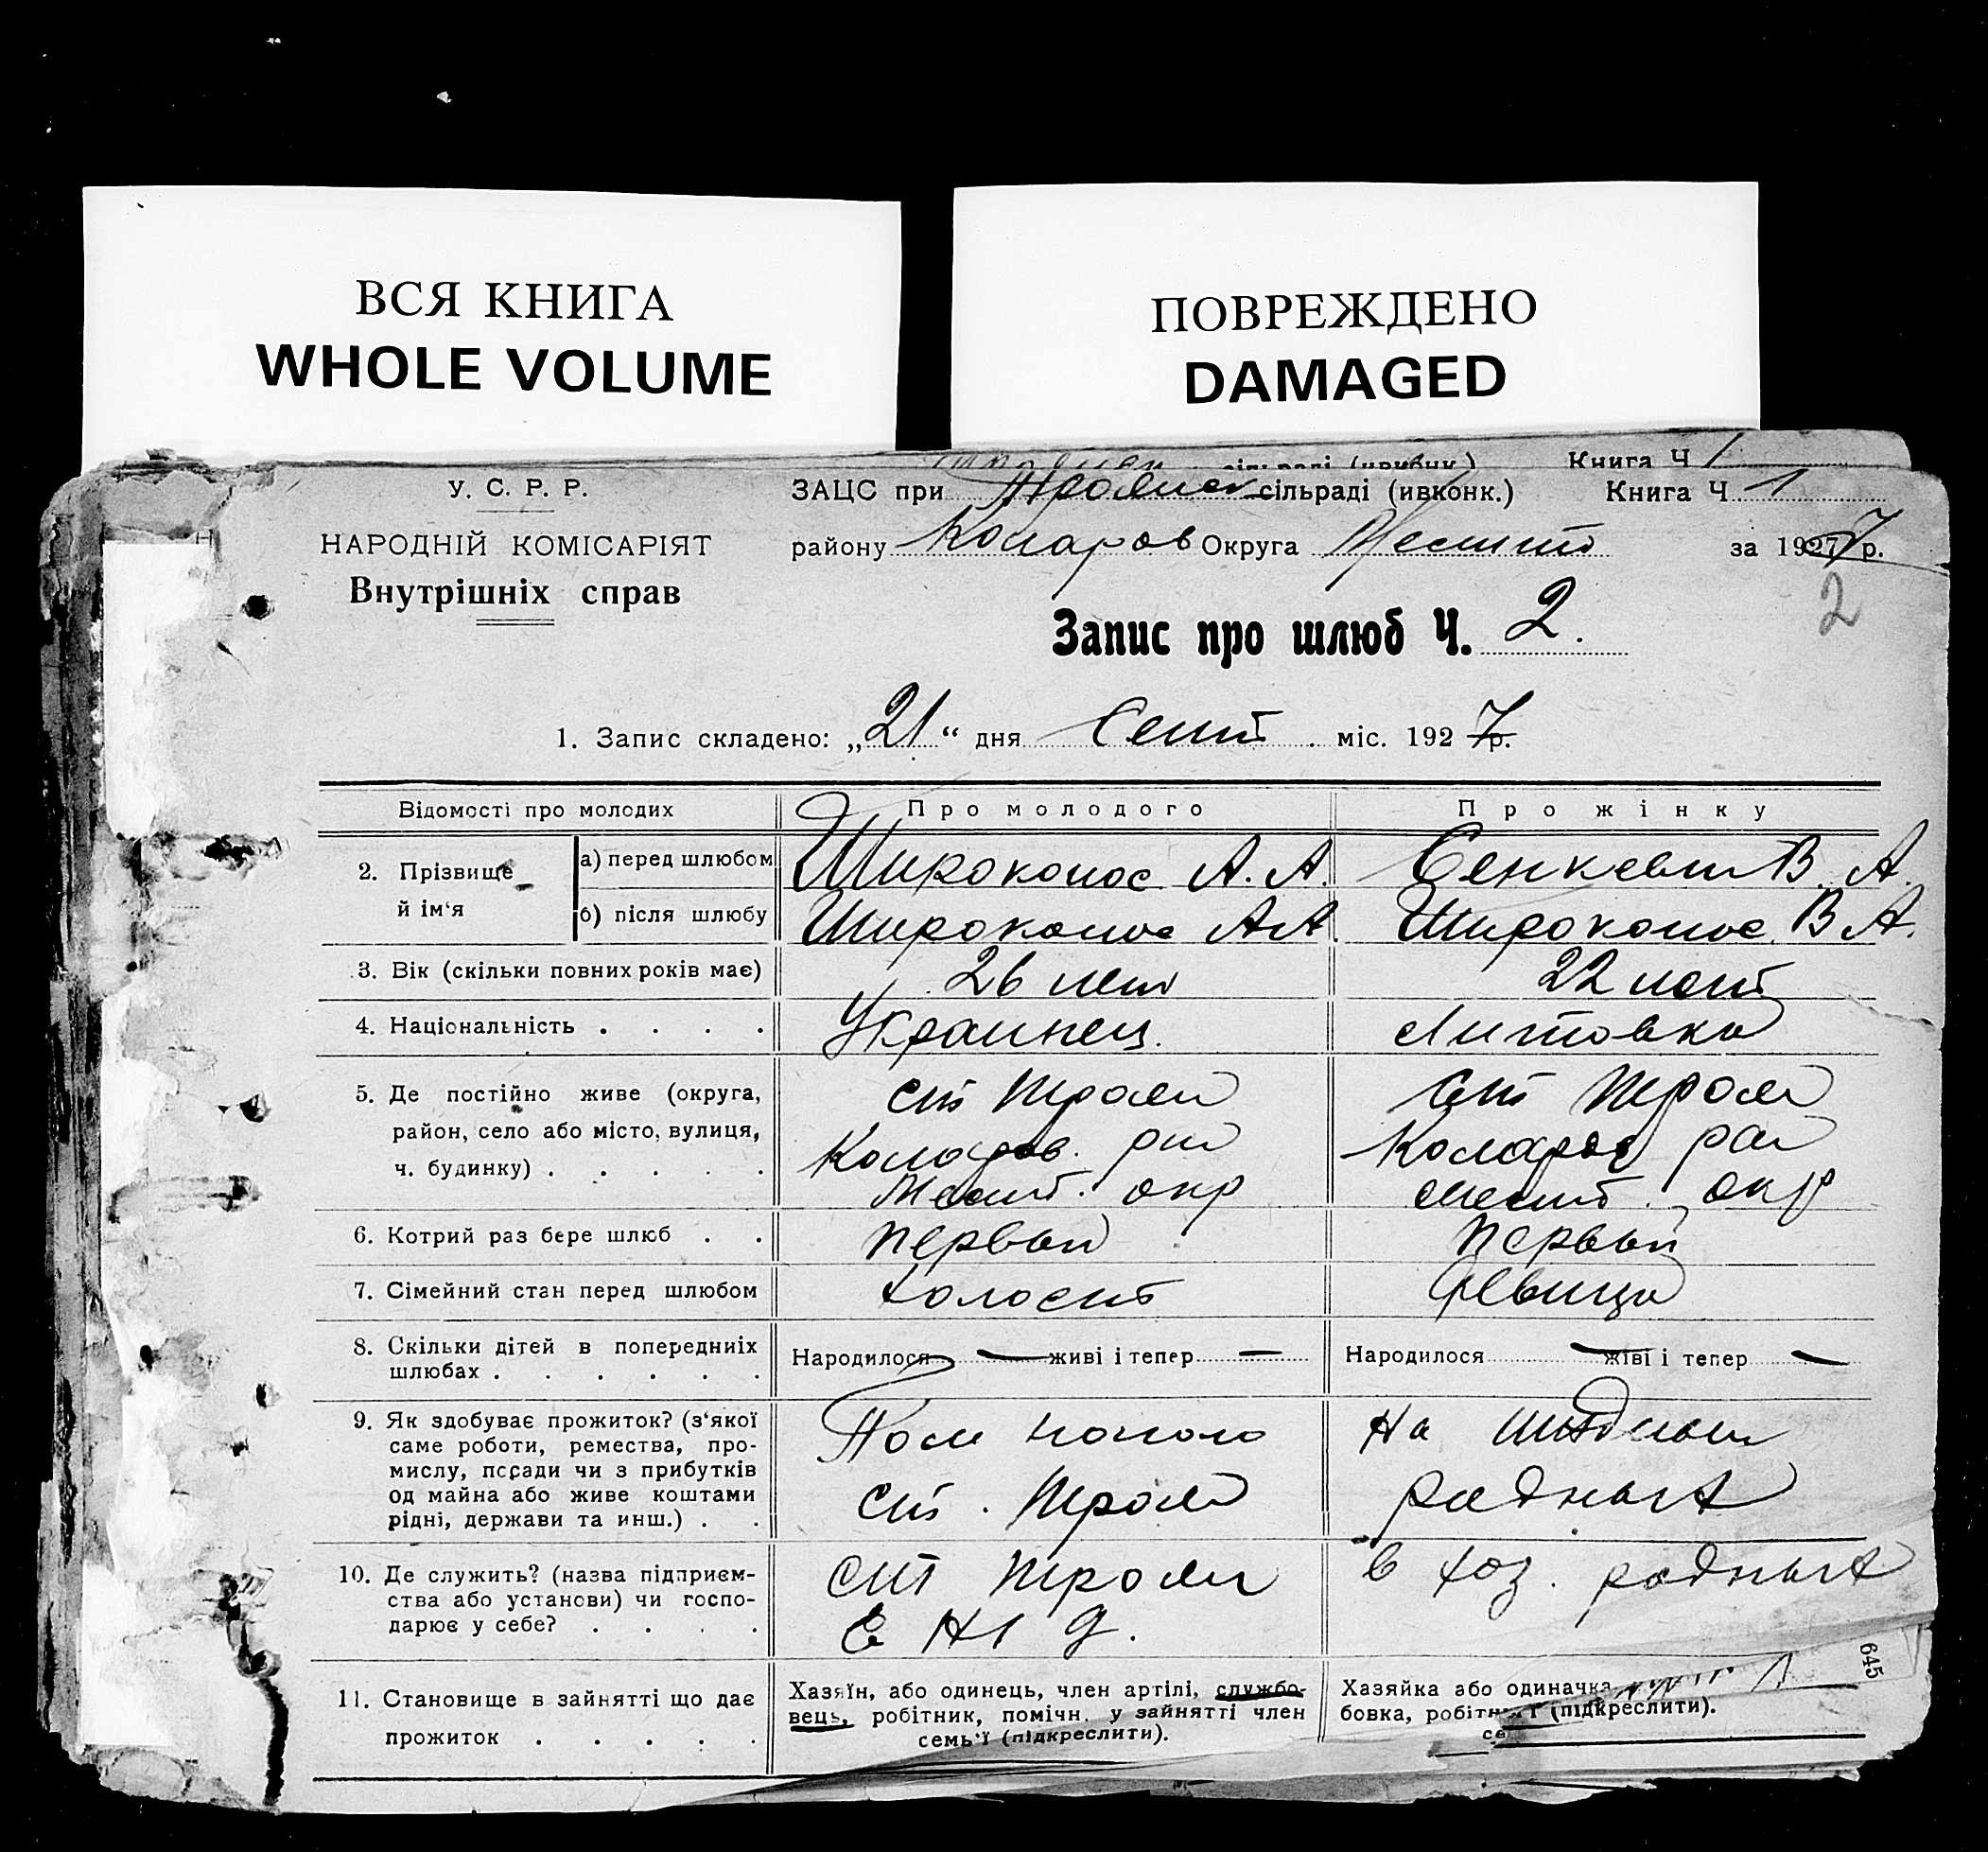 ВСЯ КНИГА
WHOLE VOLUME
ПОВРЕЖДЕНО
DAMAGED
сільраді Книга Ч 1
У. С. Р. Р.
ЗАЦС при сільраді (ивконк.) Книга Ч 1
НАРОДНІЙ КОМІСАРІЯТ
району Округа за 1927 7 р.
Внутрішніх справ
2
Запис про шлюб Ч. 2.
1. Запис складено: „21“ дня Сент. міс. 1927 р.
Відомості про молодих Про молодого Про жінку
2. Прізвище й ім‘я
а) перед шлюбом Широконос А. А. Сенкевич В. А.
б) після шлюбу Широконос А А. Широконос В А.
3. Вік (скільки повних років має) 26 лет 22 лет
4. Національність . . . . Украинец. Литовка
5. Де постійно живе (округа, ст ст
район, село або місто, вулиця, рай рай
ч. будинку) . . . . . окр окр
6. Котрий раз бере шлюб . . первый первый
7. Сімейний стан перед шлюбом холост девица
8. Скільки дітей в попередніх Народилося — живі і тепер — Народилося — живі і тепер —
шлюбах . . . . . .
9. Як здобуває прожиток? (з‘якої На
саме роботи, ремества, про-
мислу, посади чи з прибутків
од майна або живе коштами ст. родных
рідні, держави та инш.) . .
10. Де служить? (назва підприєм- ст в хоз. родных
ства або установи) чи госпо-
дарює у себе? . . . .
11. Становище в зайнятті що дає
прожиток . . . . .
Хазяїн, або одинець, член артілі, службо-
вець, робітник, помічн. у зайнятті член
семь‘ї (підкреслити).
Хазяйка або одиначка
бовка, (підкреслити).
645